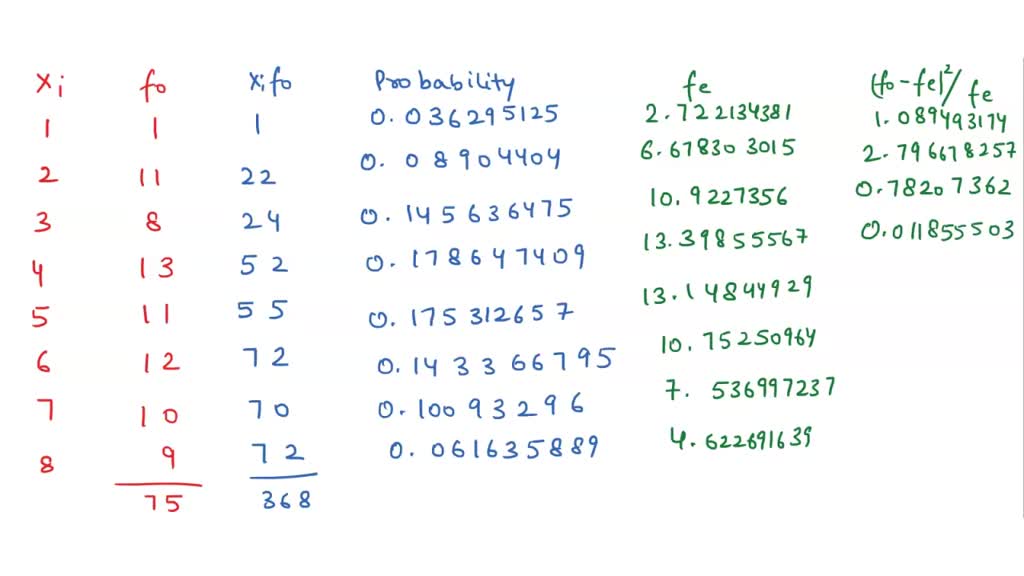 xi fo xifo Probability fe (fo-fe)²/fe
1 1 1 0.036295125 2.722134381 1.089493174
2 11 22 0.08904404 6.678303015 2.796678257
3 8 24 0.145636475 10.9227356 0.78207362
4 13 52 0.178647409 13.39855567 0.011855503
5 11 55 0.175312657 13.14844929
6 12 72 0.143366795 10.75250964
7 10 70 0.10093296 7.536997237
8 9 72 0.061635889 4.622691639
75 368